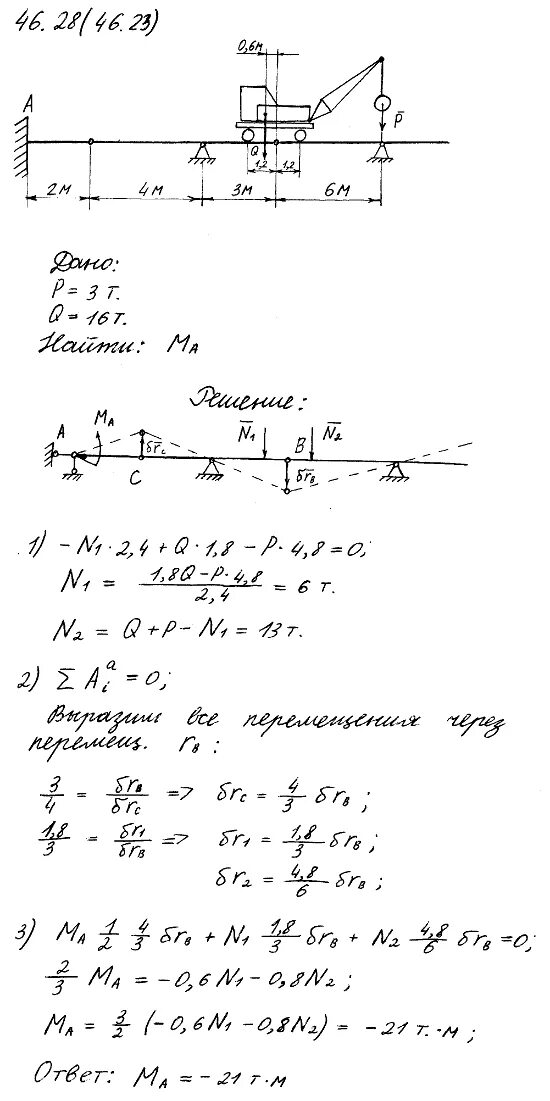 46.28(46.23)
0,6м
A
P̄
Q
1,2 1,2
2м 4м 3м 6м
Дано:
P = 3 т.
Q = 16 т.
Найти: MA
Решение:
A MA δr̄c N̄1 B N̄2
C δr̄B
1) - N1 · 2,4 + Q · 1,8 - P · 4,8 = 0;
N1 = (1,8Q - P · 4,8)/2,4 = 6 т.
N2 = Q + P - N1 = 13 т.
2) Σ Aiᵃ = 0;
Выразим все перемещения через
перемещ. rB :
3/4 = δrB/δrC => δrC = 4/3 δrB ;
1,8/3 = δr1/δrB => δr1 = 1,8/3 δrB ;
δr2 = 4,8/6 δrB ;
3) MA 1/2 4/3 δrB + N1 1,8/3 δrB + N2 4,8/6 δrB = 0;
2/3 MA = - 0,6 N1 - 0,8 N2 ;
MA = 3/2 (- 0,6 N1 - 0,8 N2) = - 21 т. · м ;
Ответ: MA = - 21 т · м